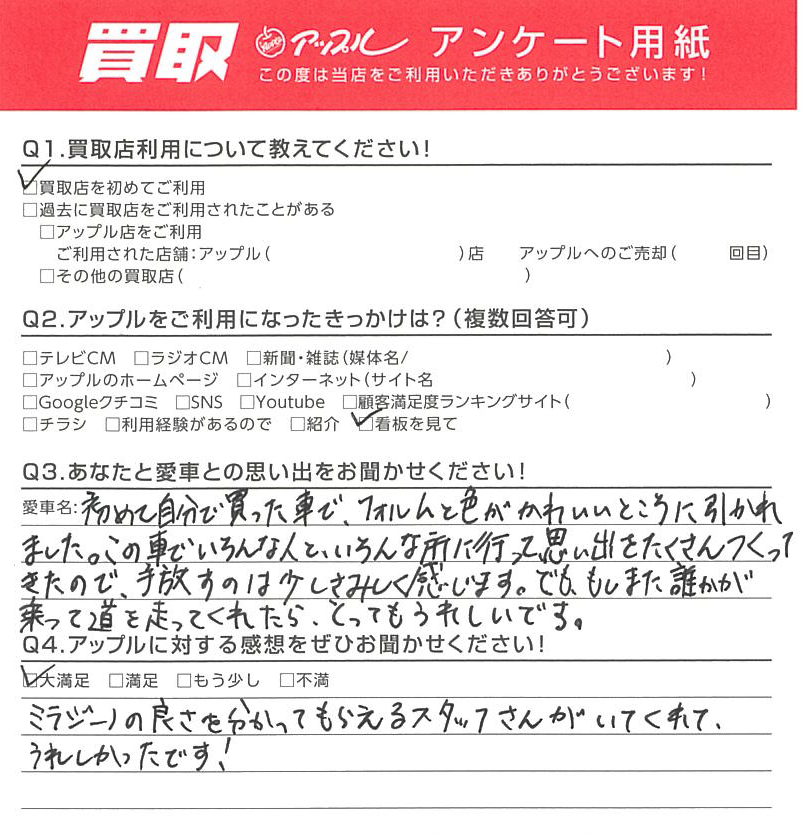 買取 アップル アンケート用紙
この度は当店をご利用いただきありがとうございます!
Q1.買取店利用について教えてください!
□買取店を初めてご利用
□過去に買取店をご利用されたことがある
□アップル店をご利用
ご利用された店舗:アップル( )店 アップルへのご売却( 回目)
□その他の買取店( )
Q2.アップルをご利用になったきっかけは?(複数回答可)
□テレビCM □ラジオCM □新聞・雑誌(媒体名/ )
□アップルのホームページ □インターネット(サイト名 )
□Googleクチコミ □SNS □Youtube □顧客満足度ランキングサイト( )
□チラシ □利用経験があるので □紹介 □看板を見て
Q3.あなたと愛車との思い出をお聞かせください!
愛車名:初めて自分で買った車で、フォルムと色がかわいいところに引かれ
ました。この車でいろんな人と、いろんな所に行って思い出をたくさんつくって
きたので、手放すのは少しさみしく感じます。でも、もしまた誰かが
乗って道を走ってくれたら、とってもうれしいです。
Q4.アップルに対する感想をぜひお聞かせください!
□大満足 □満足 □もう少し □不満
ミラジーノの良さを分かってもらえるスタッフさんがいてくれて、
うれしかったです!